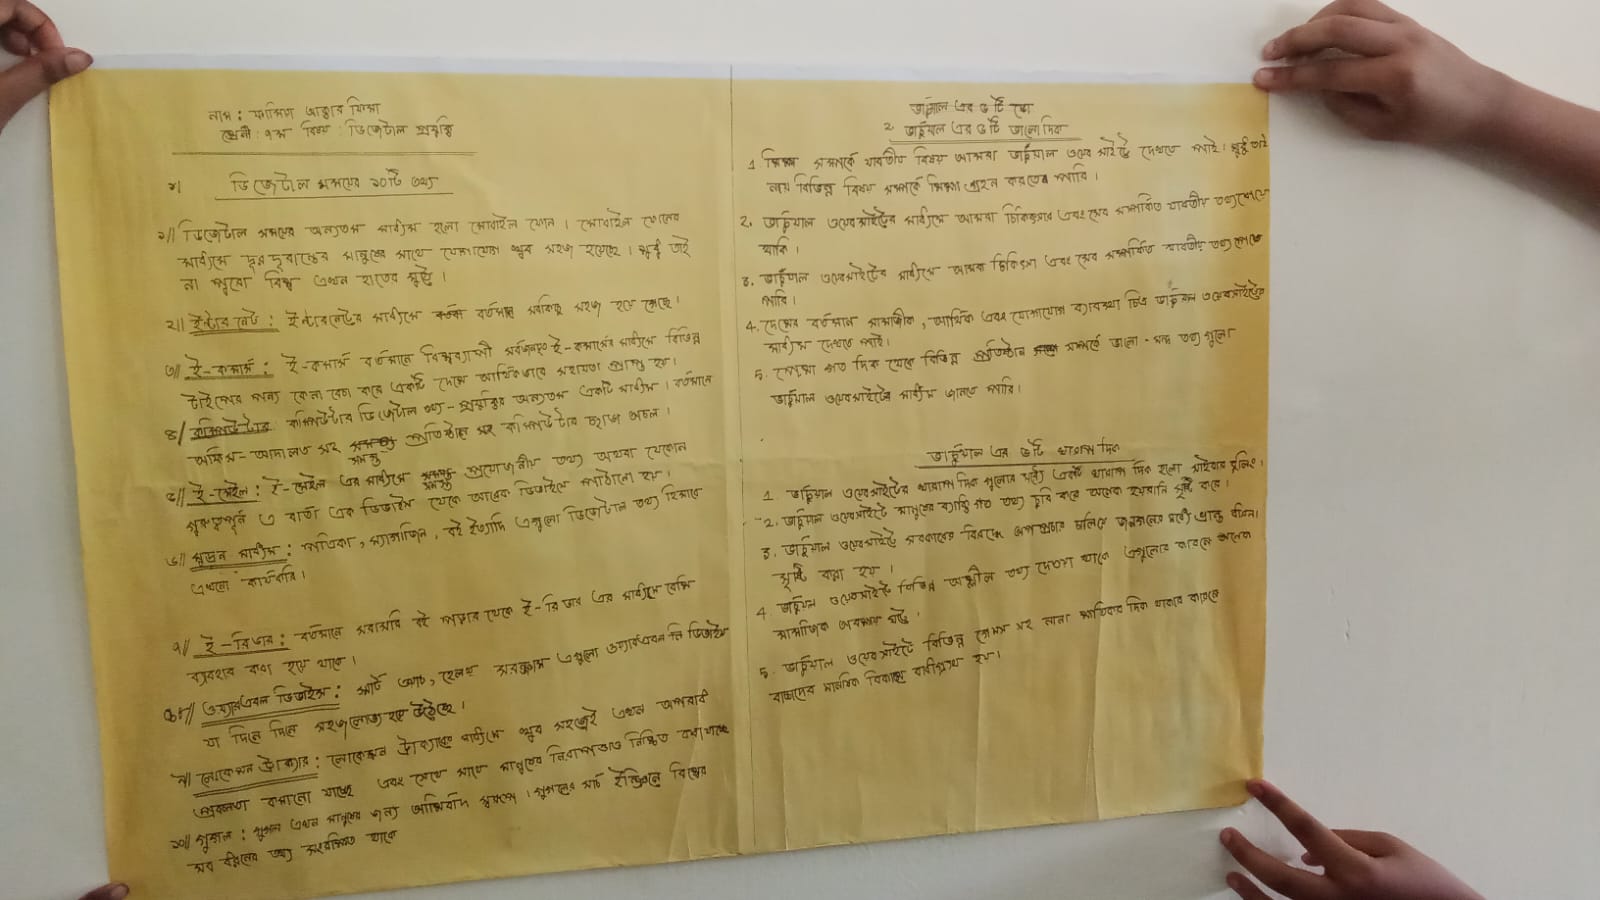 নাম : আক্তার
শ্রেণী : ৭ম বিষয় : ডিজেটাল প্রযুক্তি
১। ডিজেটাল সময়ের ১০টি তথ্য
১॥ ডিজেটাল সময়ের অন্যতম মাধ্যম হলো মোবাইল ফোন । মোবাইল ফোনের
মাধ্যমে দূরদূরান্তের মানুষের সাথে যোগাযোগ খুব সহজ হয়েছে । শুধু তাই
না পুরো বিশ্ব এখন হাতের মুঠে ।
২॥ ইন্টারনেট : ইন্টারনেটের মাধ্যমে বর্তমান সবকিছু সহজ হয়ে গেছে ।
৩॥ ই-কমার্স : ই-কমার্স বর্তমানে বিশ্বব্যাপী ই-কমার্সের মাধ্যমে বিভিন্ন
টাইপের পন্য কেনা বেচা করে একটি দেশে আর্থিকভাবে সহায়তা প্রাপ্ত হয় ।
৪/ কম্পিউটার কম্পিউটার ডিজেটাল তথ্য-প্রযুক্তির অন্যতম একটি মাধ্যম । বর্তমানে
অফিস-আদালত সহ সমস্ত প্রতিষ্ঠানে কম্পিউটার ছাড়া অচল ।
৫॥ ই-মেইল : ই-মেইল এর মাধ্যমে সমস্ত প্রয়োজনীয় তথ্য অথবা যেকোন
গুরুত্বপূর্ন এ বার্তা এক ডিভাইস থেকে আরেক ডিভাইসে পাঠানো হয় ।
৬॥ মুদ্রন মাধ্যম : পত্রিকা , ম্যাগাজিন , বই ইত্যাদি এগুলো ডিজেটাল তথ্য হিসাবে
এখনো কার্যকরি ।
৭॥ ই-রিডার : বর্তমানে সরাসরি বই পড়ার থেকে ই-রিডার এর মাধ্যমে বেশি
ব্যবহার করা হয়ে থাকে ।
৮॥ ওয়্যারএবল ডিভাইস : স্মার্ট ওয়াচ, হেলথ সরঞ্জাম এগুলো ডিভাইস
যা দিনে দিনে সহজলোভ্য হয়ে উঠেছে ।
৯॥ লোকেশন ট্রাক্যার : লোকেশন ট্রাক্যারের মাধ্যমে খুব সহজেই এখন অপরাধ
প্রবনতা কমানো যাচ্ছে এবং সেই সাথে মানুষের নিরাপত্তাও নিশ্চিত করা যাচ্ছে
১০॥ গুগল : গুগল এখন মানুষের জন্য আর্শিবাদ স্বরূপ । গুগলের সার্চ ইঞ্জিনে বিশ্বের
সব ধরনের তথ্য সংরক্ষিত থাকে
ভার্চুয়াল এর ৫ টি
2. ভার্চুয়াল এর ৫ টি ভালো দিক
1 শিক্ষা সম্পর্কে যাবতীয় বিষয় আমরা ভার্চুয়াল ওয়েবসাইটে দেখতে পাই । শুধু তাই
নয় বিভিন্ন বিষয় সম্পর্কে শিক্ষা গ্রহন করতেও পারি ।
2. ভার্চুয়াল ওয়েবসাইটের মাধ্যমে আমরা চিকিৎসার এবং সম্পর্কিত যাবতীয় তথ্য পেয়ে
থাকি ।
3. ভার্চুয়াল ওয়েবসাইটের মাধ্যমে আমরা চিকিৎসা এবং সম্পর্কিত যাবতীয় তথ্য পেতে
পারি ।
4. দেশের বর্তমান সামাজিক , আর্থিক এবং যোগাযোগ ব্যবস্থা চিত্র ভার্চুয়াল ওয়েবসাইটের
মাধ্যমে দেখতে পাই ।
5. পেশা গত দিক থেকে বিভিন্ন প্রতিষ্ঠান সম্পর্কে ভালো-মন্দ তথ্য গুলো
ভার্চুয়াল ওয়েবসাইটের মাধ্যমে জানতে পারি ।
ভার্চুয়াল এর ৫টি খারাপ দিক
1. ভার্চুয়াল ওয়েবসাইটের খারাপ দিক গুলোর মধ্যে একটি খারাপ দিক হলো সাইবার বুলিং ।
2. ভার্চুয়াল ওয়েবসাইটে মানুষের ব্যাক্তি গত তথ্য চুরি করে অনেক হয়রানি সৃষ্টি করে ।
3. ভার্চুয়াল ওয়েবসাইটে সরকারের বিরুদ্ধে অপপ্রচার চালিয়ে জনগনের মধ্যে ভ্রান্ত ধারনা
সৃষ্টি করা হয় ।
4. ভার্চুয়াল ওয়েবসাইটে বিভিন্ন অশ্লীল তথ্য দেওয়া থাকে এগুলোর কারনে অনেক
সামাজিক অবক্ষয় ঘটে ।
5. ভার্চুয়াল ওয়েবসাইটে বিভিন্ন গেমস সহ নানা ক্ষতিকার দিক থাকার কারনে
বাচ্চাদের মানসিক বিকাশে বাধাগ্রস্থ হয় ।